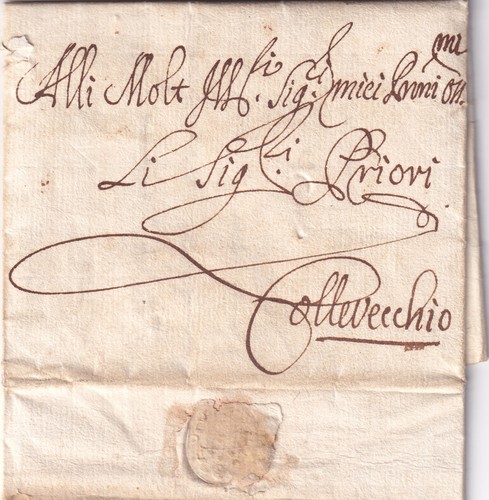 Alli Molt Ill.ri Sig.ri miei
Li Sig.ri Priori
Collevecchio